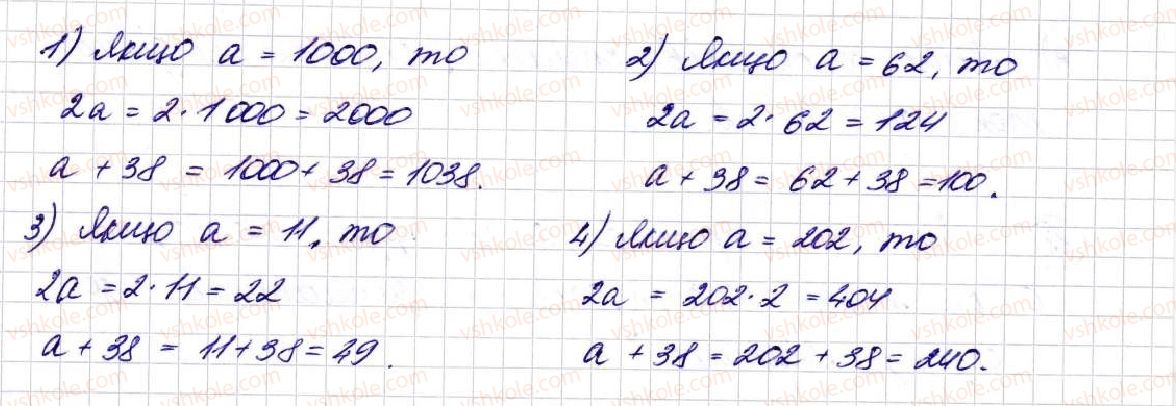 1) Якщо a = 1000, то
2a = 2·1000 = 2000
a + 38 = 1000 + 38 = 1038.
2) Якщо a = 62, то
2a = 2·62 = 124
a + 38 = 62 + 38 = 100.
3) Якщо a = 11, то
2a = 2·11 = 22
a + 38 = 11 + 38 = 49.
4) Якщо a = 202, то
2a = 202·2 = 404
a + 38 = 202 + 38 = 240.
vshkole.com